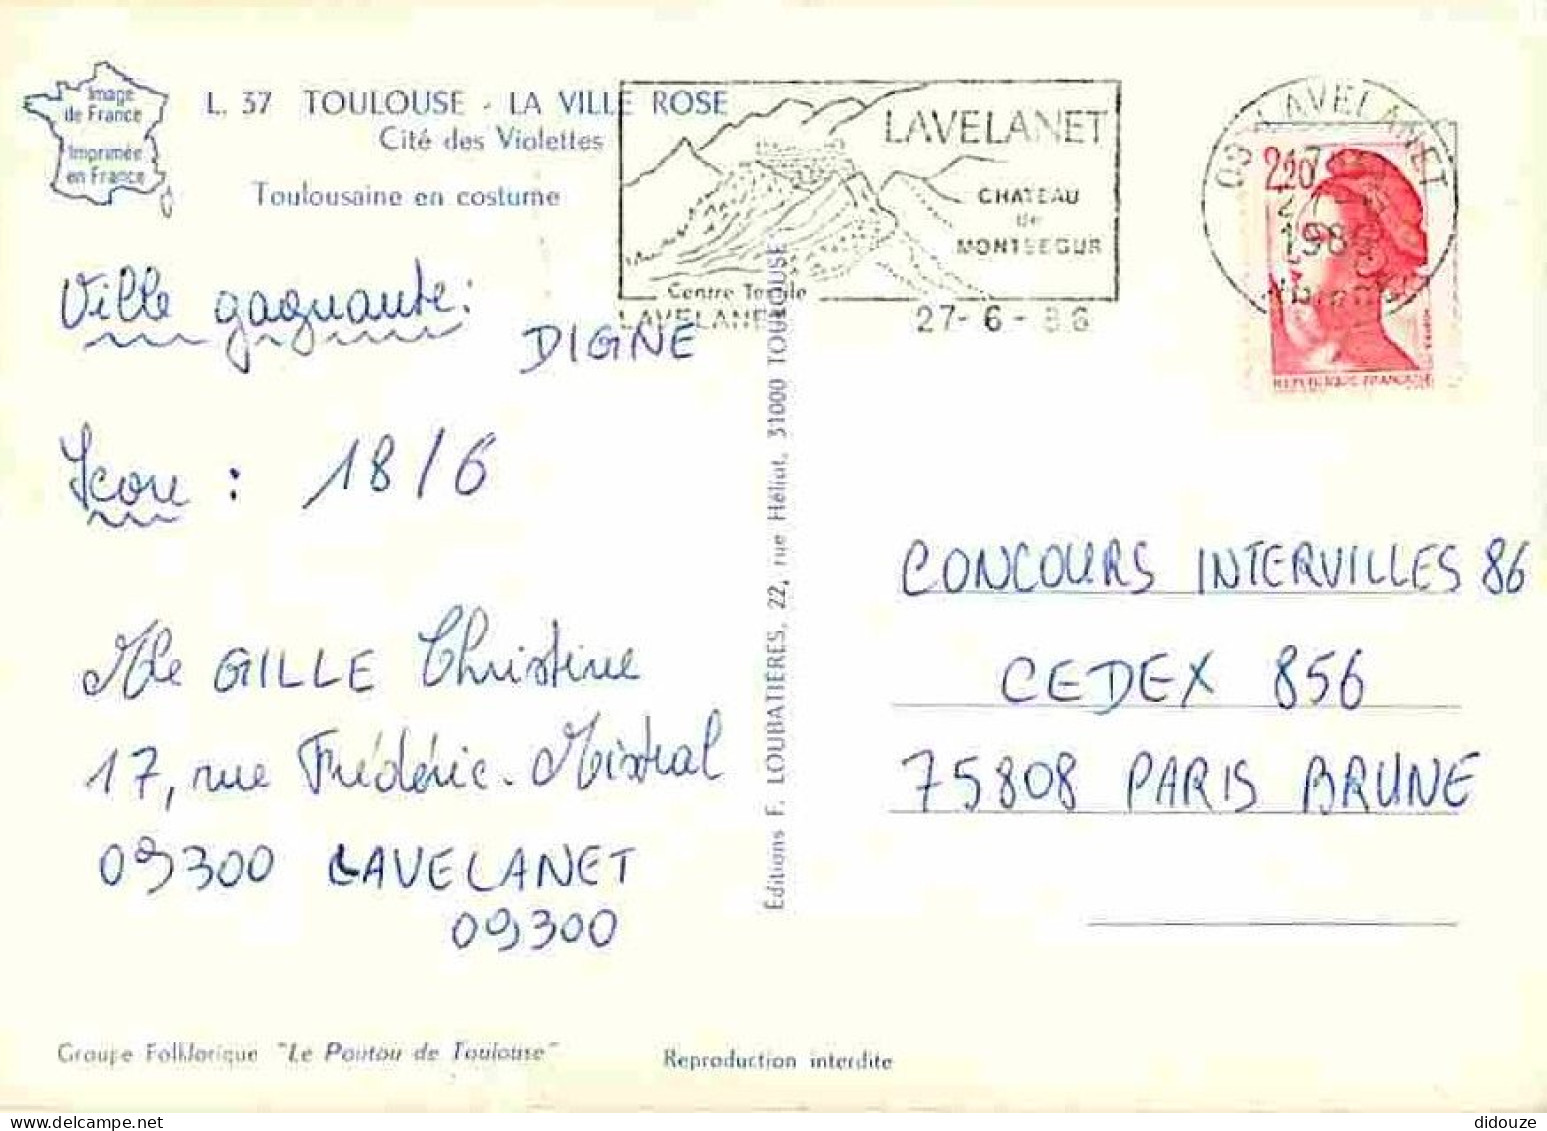 Image
de France
Imprimée
en France
L. 37 TOULOUSE - LA VILLE ROSE
Cité des Violettes
Toulousaine en costume
LAVELANET
CHATEAU
de
MONTSEGUR
Centre Textile
LAVELANET
27-6-86
09 LAVELANET
17
27-6
1986
ARIEGE
2,20
REPUBLIQUE FRANÇAISE
Ville gagnante :
DIGNE
Score : 18/6
Mle GILLE Christine
17, rue Frédéric. Mistral
09300 LAVELANET
09300
Éditions F. LOUBATIÈRES, 22, rue Héliot, 31000 TOULOUSE
CONCOURS INTERVILLES 86
CEDEX 856
75808 PARIS BRUNE
Groupe Folklorique "Le Poutou de Toulouse"
Reproduction interdite
didouze